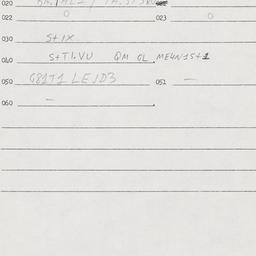 020
022 0 023 0
030 S+IX
040 S+TI.VU QM OL ME4N1S+1
050 G81T1 LEJD3 051 —
060 —